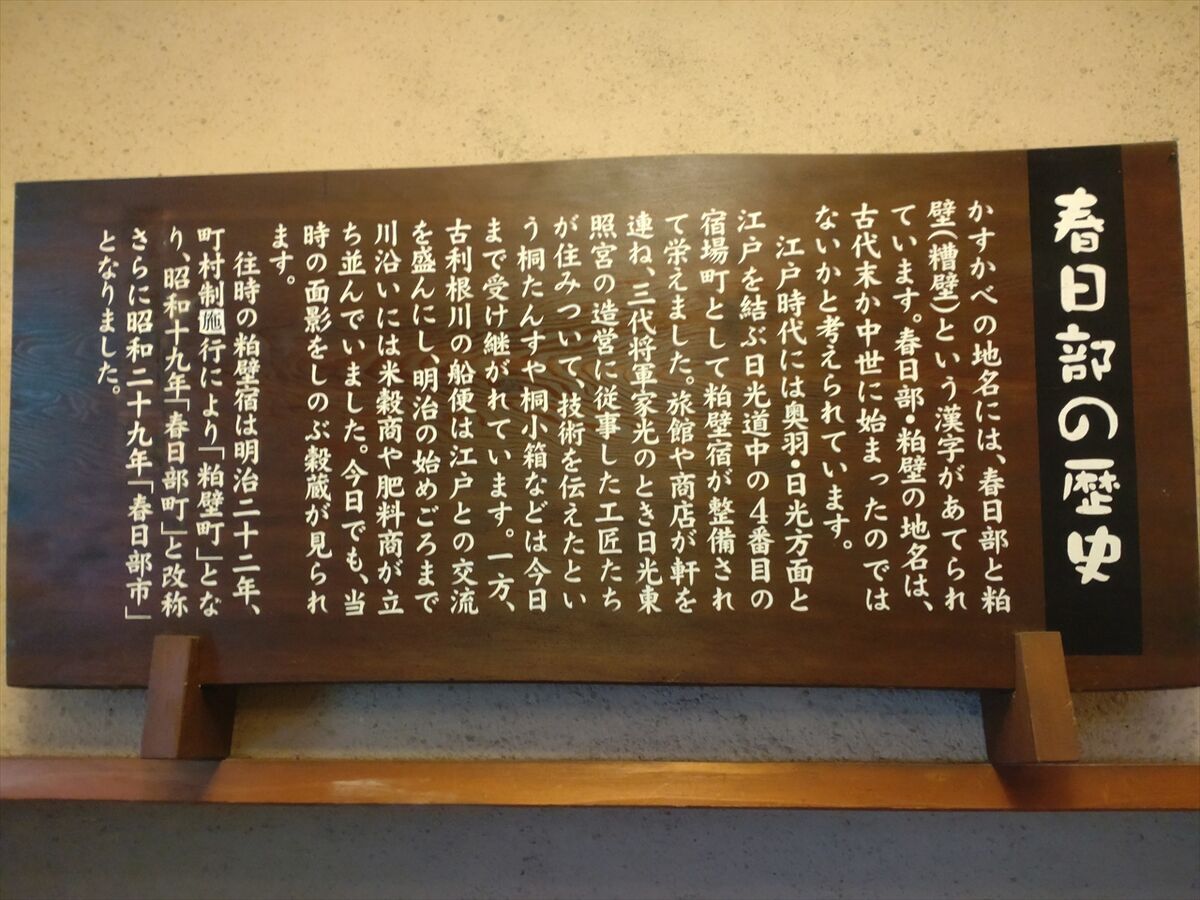 春日部の歴史
かすかべの地名には、春日部と粕
壁(糟壁)という漢字があてられ
ています。春日部・粕壁の地名は、
古代末か中世に始まったのでは
ないかと考えられています。
江戸時代には奥羽・日光方面と
江戸を結ぶ日光道中の4番目の
宿場町として粕壁宿が整備され
て栄えました。旅館や商店が軒を
連ね、三代将軍家光のとき日光東
照宮の造営に従事した工匠たち
が住みついて、技術を伝えたとい
う桐たんすや桐小箱などは今日
まで受け継がれています。一方、
古利根川の船便は江戸との交流
を盛んにし、明治の始めごろまで
川沿いには米穀商や肥料商が立
ち並んでいました。今日でも、当
時の面影をしのぶ穀蔵が見られ
ます。
往時の粕壁宿は明治二十二年、
町村制施行により「粕壁町」とな
り、昭和十九年「春日部町」と改称
さらに昭和二十九年「春日部市」
となりました。